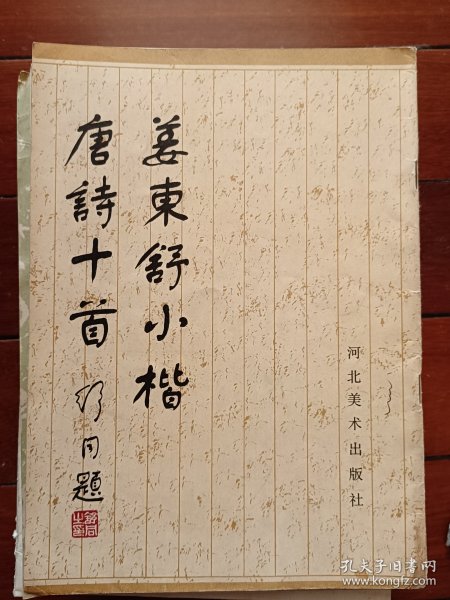 姜東舒小楷
唐詩十首
舒同題
舒同之印
河北美术出版社
孔夫子旧书网